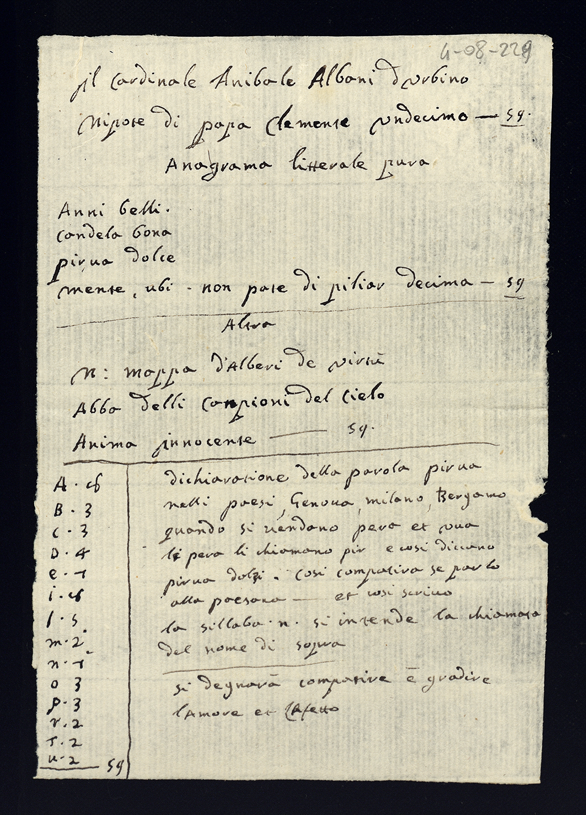 4-08-229
Il Cardinale Anibale Albani d'Urbino
Nipote di papa Clemente undecimo — 59.
Anagrama litterale pura
Anni belli.
Candela bona
pirua dolce
mente, ubi - non pate di piliar decima — 59
Altra
N: mappa d'Alberi de virtù
Abba delli Canpioni del Cielo
Anima innocente — 59.
A . 6
B . 3
C . 3
D . 4
e . 7
i . 6
l . 5
m . 2.
n . 7.
o 3
p . 3
r . 2
t . 2
u . 2 — 59
dichiaratione della parola pirua
nelli paesi, Genoua, milano, Bergamo
quando si uendano pera et uua
le pera li chiamono pir e cosi diccano
pirua dolzi. Cosi compatira se parlo
alla paesana — et cosi scriuo
la sillaba . n . si intende la chiamata
del nome di sopra
si degnarà compatire è gradire
l'Amore et l'Afetto